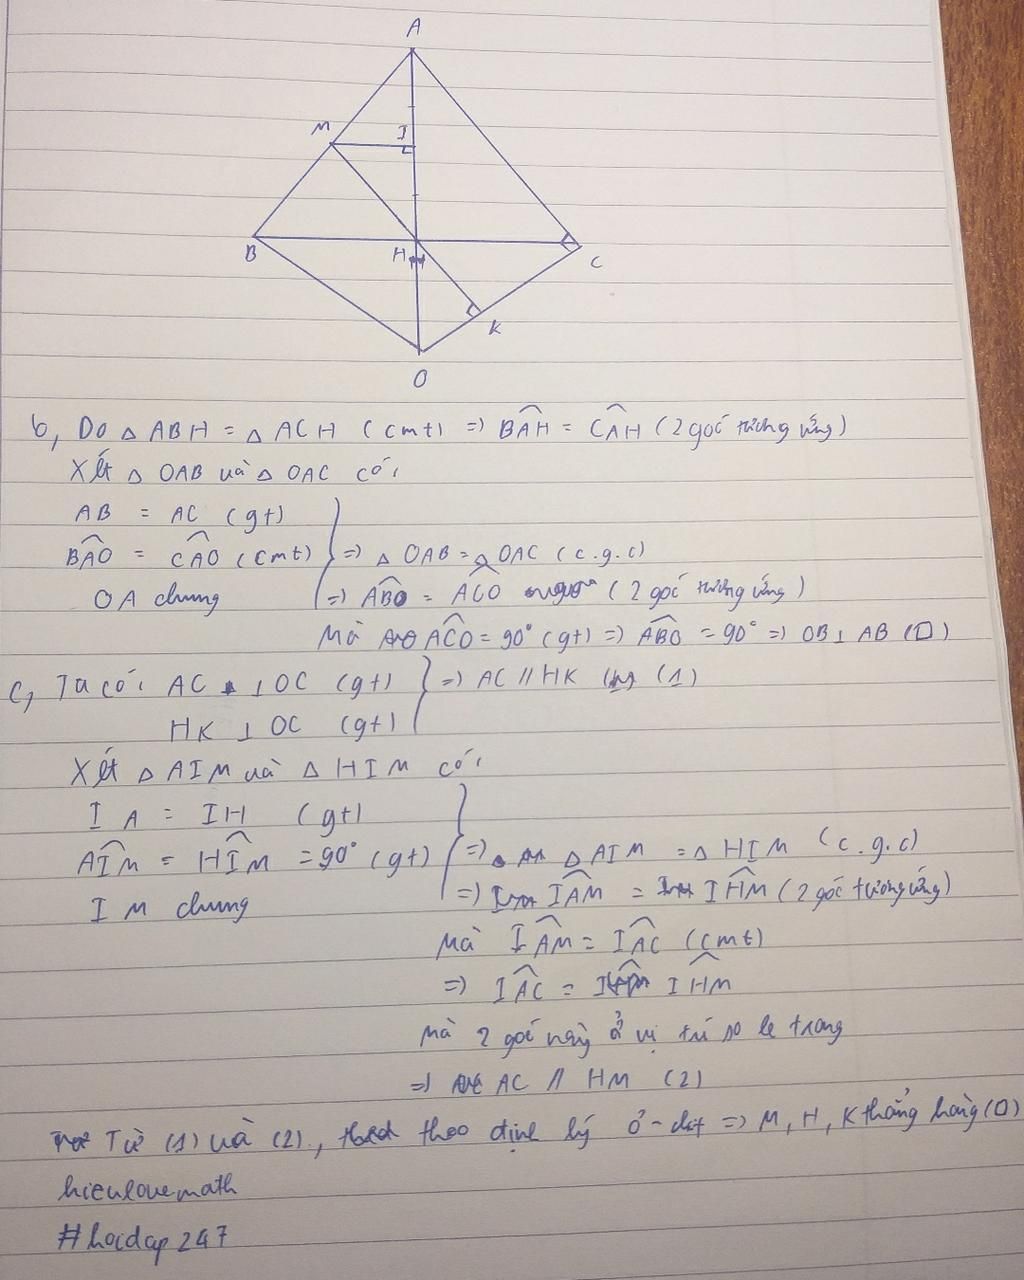 A
M
I
B
H
C
K
O
b, Do △ ABH = △ ACH (cmt) => BAH = CAH (2 góc tương ứng)
Xét △ OAB và △ OAC có:
AB = AC (gt)
BAO = CAO (cmt) => △ OAB = △ OAC (c.g.c)
OA chung => ABO = ACO (2 góc tương ứng)
Mà ACO = 90° (gt) => ABO = 90° => OB ⊥ AB (□)
c, Ta có: AC ⊥ OC (gt) => AC // HK (1)
HK ⊥ OC (gt)
Xét △ AIM và △ HIM có:
IA = IH (gt)
AIM = HIM = 90° (gt) => △ AIM = △ HIM (c.g.c)
IM chung => IAM = IHM (2 góc tương ứng)
Mà IAM = IAC (cmt)
=> IAC = IHM
Mà 2 góc này ở vị trí so le trong
=> AC // HM (2)
Từ (1) và (2), theo định lý Ơ-clit => M, H, K thẳng hàng (□)
hieulovemath
#hoidap247